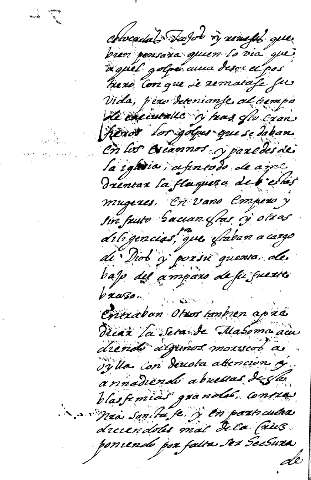 bien pensara quien lo via que
aquel golpe avia de ser el pos
trero con que se rematase su
vida, pero detenianse al tiempo
de executallo y tras esto eran
los golpes que se daban
en los escannos y paredes de
la iglesia, a fin todo de ame
drentar la flaqueza de estas
mugeres. En vano empero y
sin fruto hacian estas y otras
diligencias, que estaban a cargo
de Dios y por su quenta de
bajo del amparo de su fuerte
brazo.
Entraban otros tambien a pre
dicar la seta de Mahoma acu
diendo algunos moriscos a
oylla con devota attencion y
annadiendo a bueltas de esto
blasfemias grandes contra
nra santa fe, y en particular
diciendoles mal de la Cruz
poniendo por falta ser hechura
de